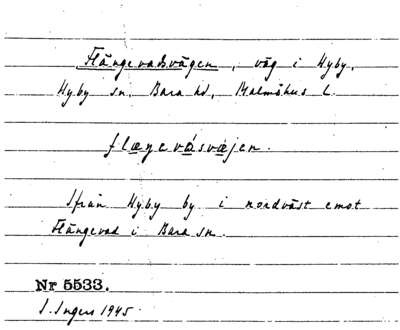 Flängevadsvägen, väg i Hyby,
Hyby sn, Bara hd, Malmöhus l.
flæŋevásvæ̀jen.
Ifrån Hyby by i nordväst emot
Flängevad i Bara sn.
Nr 5533.
I. Ingers 1945.